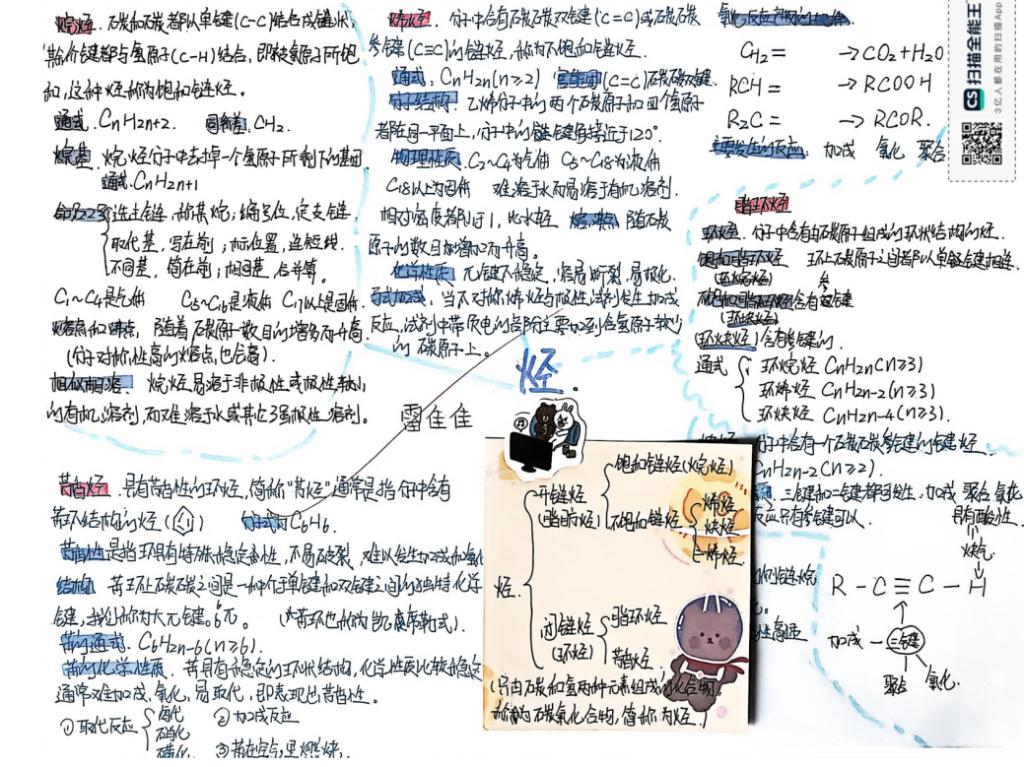 烷烃. 石碳和碳都以单键(C-C)结合成链状,
剩余价键都与氢原子(C-H)结合, 即被氢原子所饱
和, 这种烃称为饱和链烃.
通式. CnH2n+2. 同系差. CH2.
烷基. 烷烃分子中去掉一个氢原子所剩下的基团
通式. CnH2n+1
选主链, 称某烷; 编号位, 定支链,
取代基, 写在前; 标位置, 连短线.
不同基, 简在前; 相同基, 合并算.
C1~C4是气体 C5~C16是液体 以上是固体.
熔点和沸点, 随着石碳原子数目的增多而升高.
(分子对称性高的熔点也高).
相似相溶. 烷烃易溶于非极性或极性较小
的有机溶剂, 而难溶于水或其它强极性溶剂.
烯烃. 分子中含有石碳石碳双键(C=C)或石碳石碳
叁键(C≡C)的链烃, 称为不饱和链烃.
通式. CnH2n(n≥2) 官能团(C=C)石碳石碳双键.
分子结构. 乙烯分子中的两个石碳原子和四个氢原子
都在同一平面上, 分子中的键键角接近于120°.
物理性质. C2~C4为气体 C5~C18为液体
C18以上为固体 难溶于水而易溶于有机溶剂.
相对密度都小于1, 比水轻. 熔.沸点 随石碳
原子的数目增加而升高.
化学性质. 键不稳定, 容易断裂, 易极化.
马式加成. 当不对称烯烃与极性试剂发生加成
反应, 试剂中带负电的部分主要加到含氢原子较少
的石碳原子上.
CH2= →CO2+H2O
RCH= →RCOOH
R2C= →RCOR.
主要发生的反应: 加成 氧化 聚合
CS 扫描全能王
3亿人都在用的扫描App
脂环烃
环烃. 分子中含有由石碳原子组成的环状结构的烃.
饱和脂环烃 环上石碳原子之间都以单键相连.
(环烷烃)
(环炔烃)
(环炔烃)含有叁键的.
通式
环烷烃 CnH2n(n≥3)
环烯烃 CnH2n-2(n≥3)
环炔烃 CnH2n-4(n≥3).
分子中含有一个石碳石碳叁键的链烃.
CnH2n-2(n≥2).
三键和二键都可发生. 加成 聚合 氧化
反应只有叁键可以.
具有酸性.
炔氢
R-C≡C-H
加成 三键
聚合 氧化.
烃.
雷佳佳
芳香烃. 具有芳香性的环烃, 简称“芳烃”通常是指分子中含有
苯环结构的烃() 分子式为C6H6.
芳香性是指环具有特殊稳定性, 不易破裂, 难以发生加成和氧化
结构. 苯环上石碳石碳之间是一种介于单键和双键之间的独特化学
键, 我们称为大π键. (苯环也称为凯库勒式).
苯的通式. C6H2n-6(n≥6).
苯的化学性质. 苯具有稳定的环状结构, 化学性质比较稳定
通常难加成, 氧化, 易取代, 即表现出芳香性.
①取代反应
卤化
硝化
磺化
②加成反应
③苯在空气里燃烧.
烃.
开链烃
(脂肪烃)
饱和链烃(烷烃)
不饱和链烃
烯烃
炔烃
二烯烃
闭链烃
(环烃)
脂环烃
芳香烃
(只由石碳和氢两种元素组成的化合物,
称为石碳氢化合物, 简称为烃.)